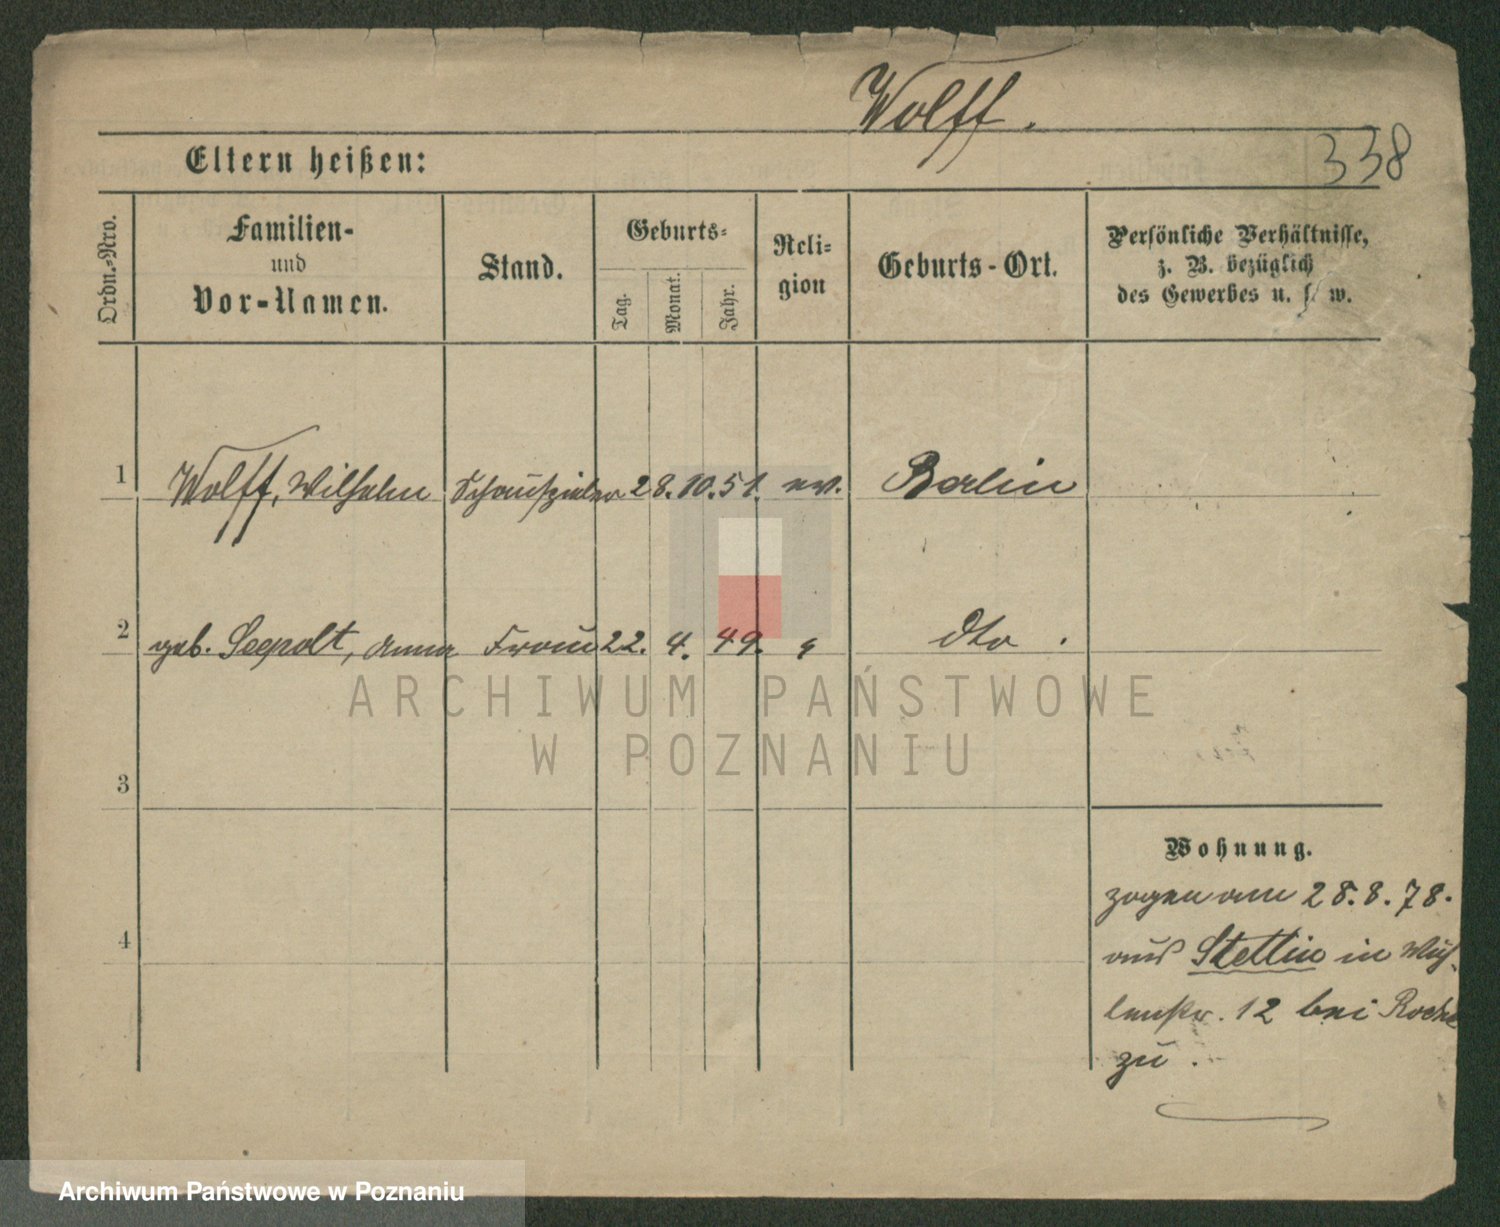 Wolff.
338
Eltern heißen:
Ordn.-Nro.
Familien-
und
Vor-Namen.
Stand.
Geburts-
Tag.
Monat.
Jahr.
Reli-
gion
Geburts-Ort.
Persönliche Verhältnisse,
z. B. bezüglich
des Gewerbes u. s. w.
1 Wolff, Wilhelm Schauspieler 28. 10. 51. ev. Berlin
2 geb. Seepolt, Anna Frau 22. 4. 49. " dto.
3
4
Wohnung.
zogen am 28. 8. 78.
aus Stettin in Müh-
lenstr. 12 bei
zu.
ARCHIWUM PAŃSTWOWE
W POZNANIU
Archiwum Państwowe w Poznaniu